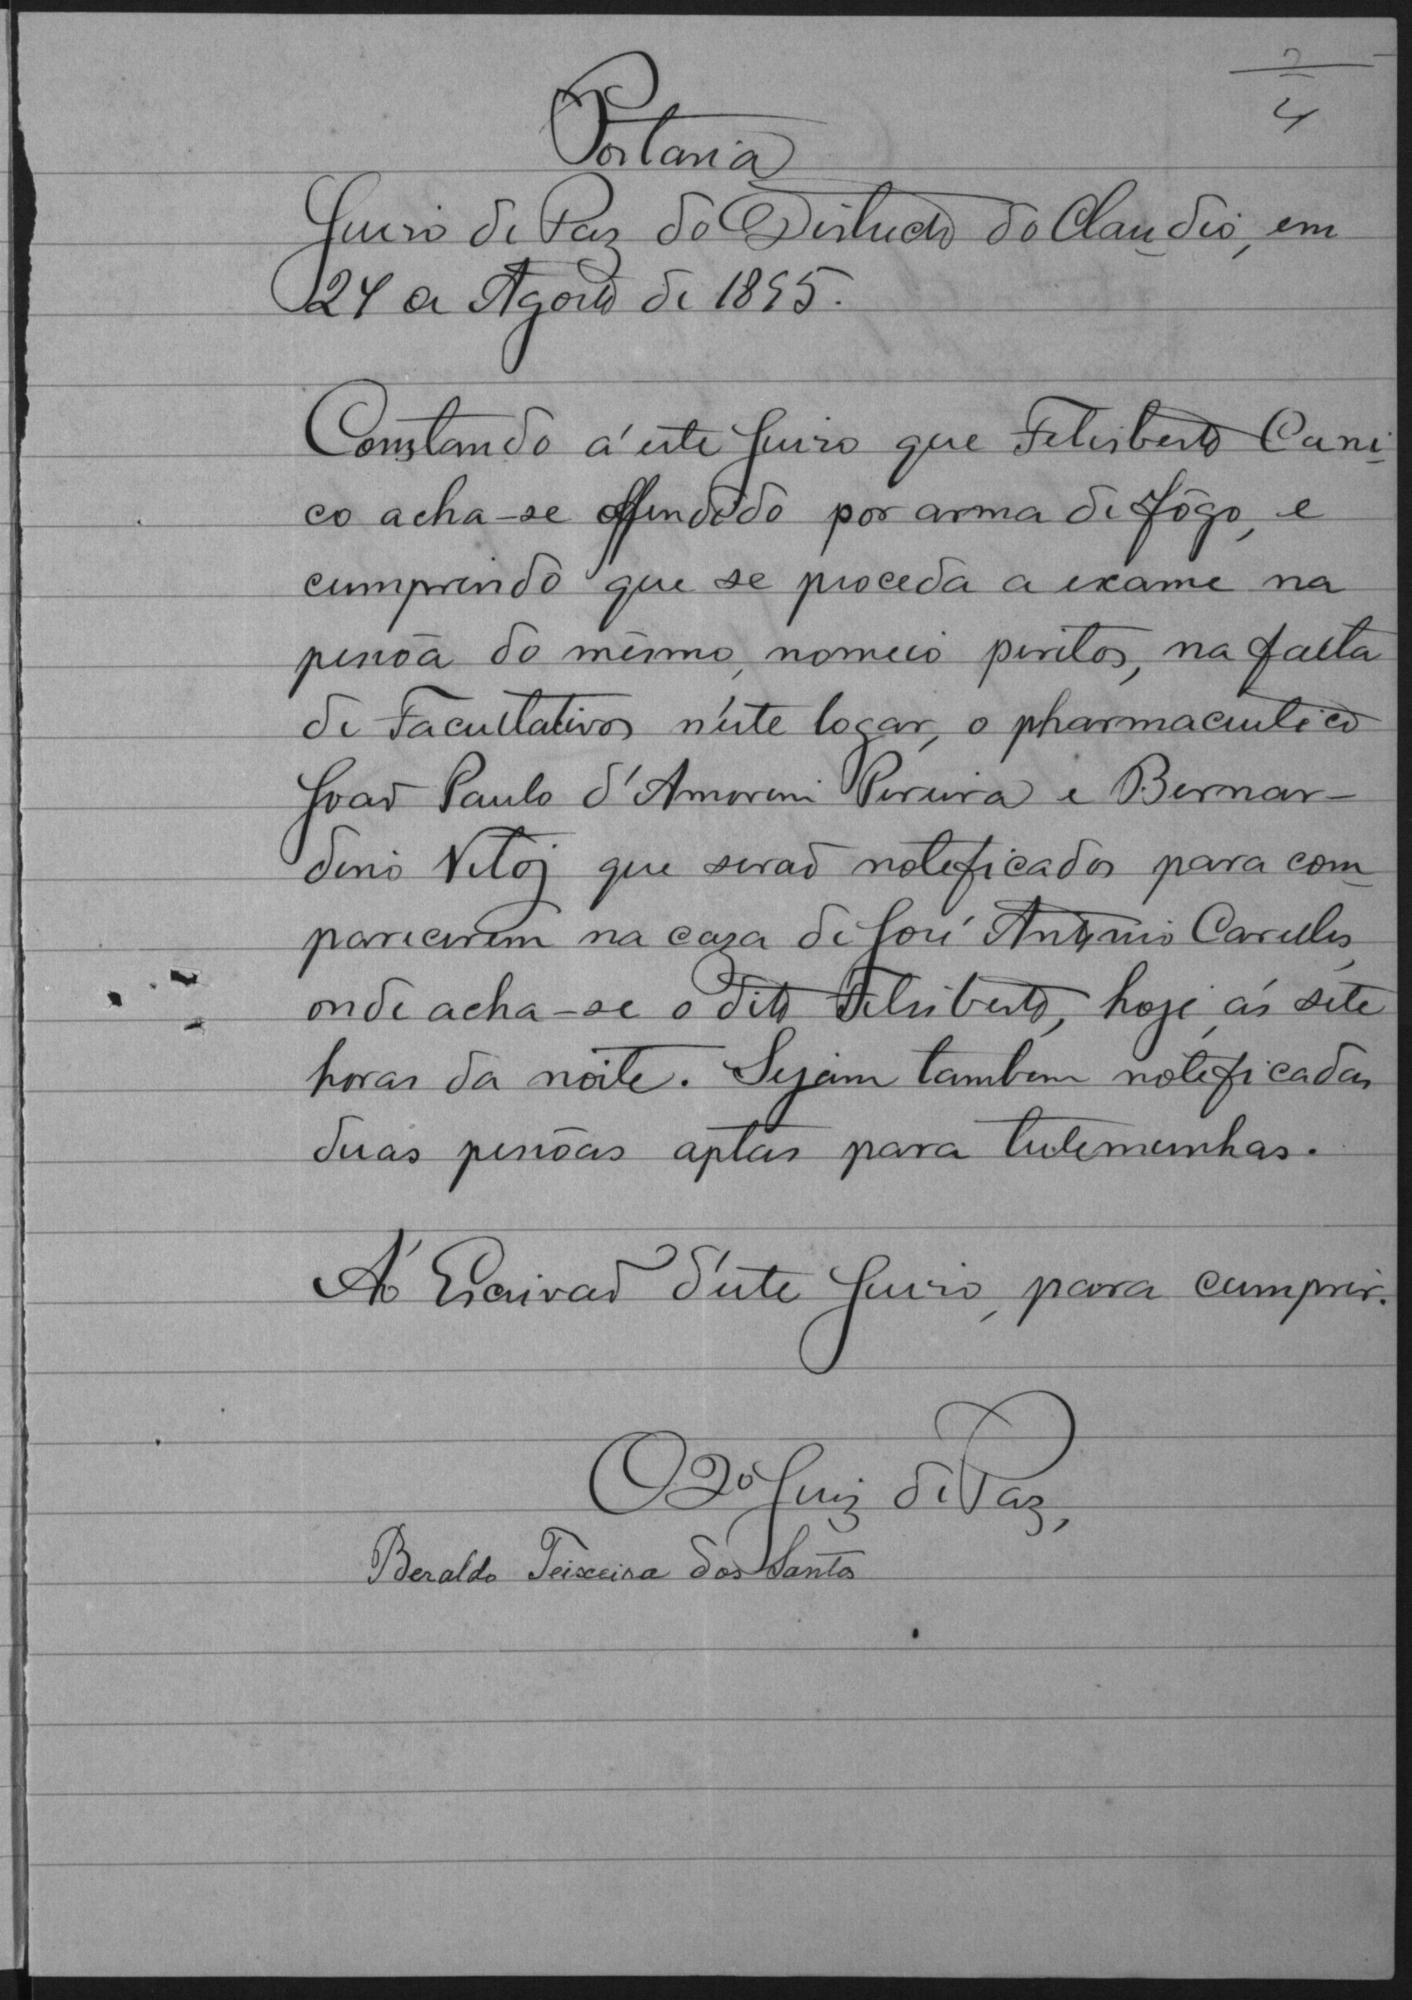 2
4
Portaria
Juizo de Paz do Districto do Claudio, em
24 de Agosto de 1895.
Constando á este Juizo que Felisberto Cani-
co acha-se offendido por arma de fôgo, e
cumprindo que se proceda a exame na
pessôa do mêsmo, nomeio peritos, na falta
de Facultativos n'este logar, o pharmaceutico
João Paulo d'Amorim Pereira e Bernar-
dino que serão noteficados para com-
parecerem na caza de José Antonio
onde acha-se o dito Felisberto, hoje, ás sete
horas da noite. Sejam tambem noteficadas
duas pessôas aptas para testemunhas.
Ao Escrivão d'este Juizo, para cumprir.
O 2º Juiz de Paz,
Beraldo Teixeira dos Santos